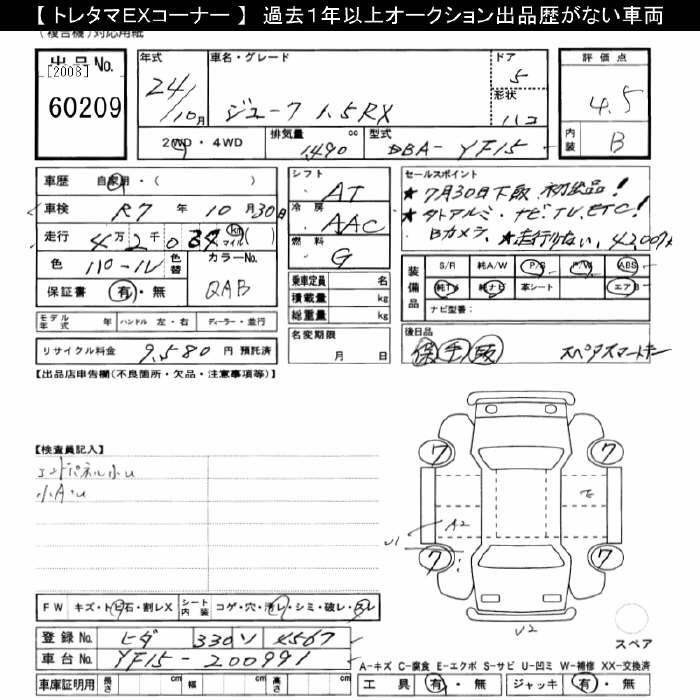 【 トレタマEXコーナー 】 過去1年以上オークション出品歴がない車両
(複合機)対応用紙
出品No. [2008] 60209
年式 24/10月
車名・グレード ジューク 1.5RX
ドア 5
形状 ハコ
評価点 4.5
内装 B
2WD・4WD
排気量 cc 1,490
型式 DBA- YF15
車歴 自家用・( )
車検 R7 年 10 月 30日
走行 4万 2千 0 km マイル ( )
色 パール 色替
カラーNo. QAB
保証書 有・無
シフト AT
冷房 AAC
燃料 G
乗車定員 名
積載量 kg
総重量 kg
名変期限 月 日
セールスポイント
★7月30日下取 初出品!
★外アルミ、ナビ、TV、ETC!
Bカメラ、★走行少ない、
装備品 S/R 純A/W P/S P/W ABS
純TV 純ナビ 革シート エアB
ナビ型番:
モデル年式 年 ハンドル 左・右 ディーラー・並行
リサイクル料金 9,580 円 預託済
後日品
保 手 取 スペアスマートキー
【出品店申告欄(不良箇所・欠品・注意事項等)】
【検査員記入】
エンドパネル小U
小A・U
7 7
A2
U1
7 7
U2
スペア
FW キズ・トビ石・割レX シート内装 コゲ・穴・汚レ・シミ・破レ・スレ
登録No. ヒダ 330 ソ 4567
車台No. YF15-200991
車庫証明用 長さ cm 幅 cm 高さ cm
A-キズ C-腐食 E-エクボ S-サビ U-凹ミ W-補修 XX-交換済
工具 有・無 ジャッキ 有・無